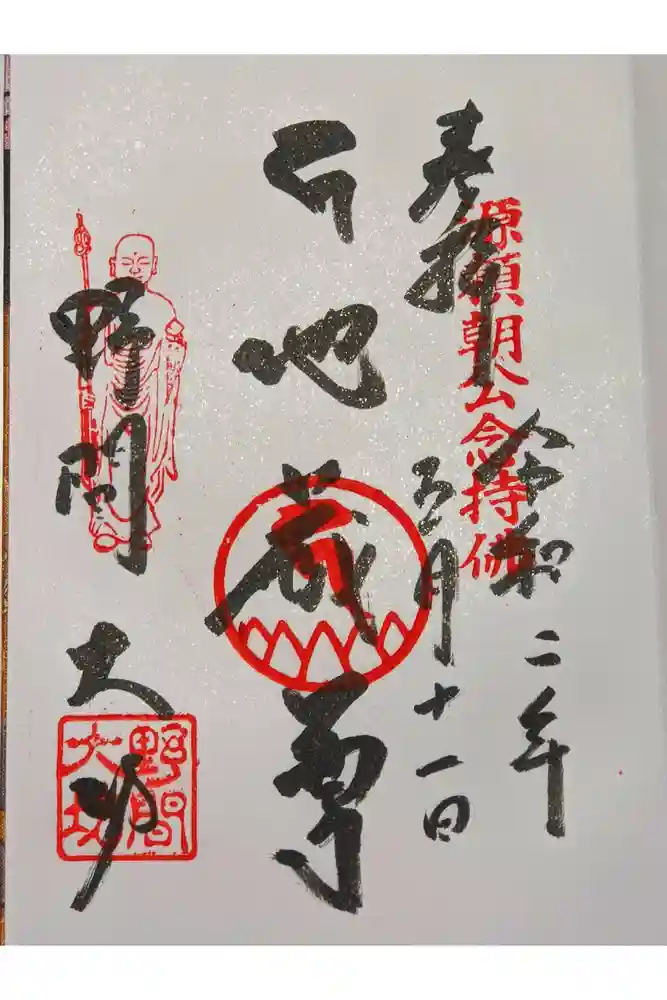 奉拝
源頼朝公念持佛
令和二年
五月十一日
地蔵尊
野間大坊
野間
大坊